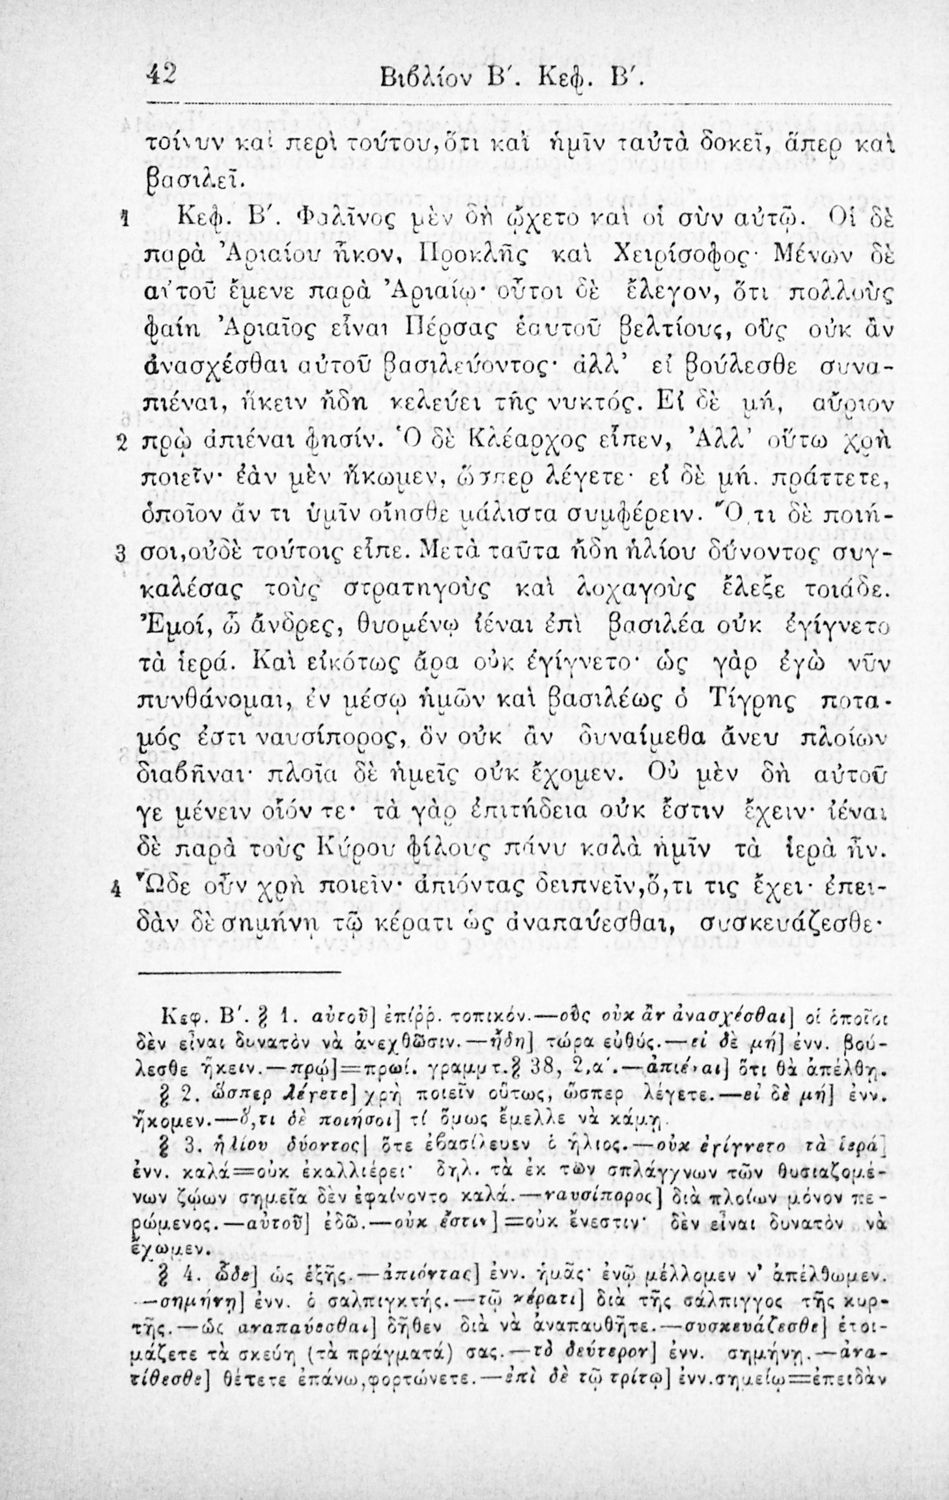 42 Βιβλίον Β΄. Κεφ. Β΄.
τοίνυν καὶ περὶ τούτου,ὅτι καὶ ἡμῖν ταὐτὰ δοκεῖ, ἅπερ καὶ
βασιλεῖ.
1 Κεφ. Β΄. Φαλῖνος μὲν δὴ ᾤχετο καὶ οἱ σὺν αὐτῷ. Οἱ δὲ
παρὰ Ἀριαίου ἧκον, Προκλῆς καὶ Χειρίσοφος· Μένων δὲ
αὐτοῦ ἔμενε παρὰ Ἀριαίῳ· οὗτοι δὲ ἔλεγον, ὅτι πολλοὺς
φαίη Ἀριαῖος εἶναι Πέρσας ἑαυτοῦ βελτίους, οὓς οὐκ ἂν
ἀνασχέσθαι αὐτοῦ βασιλεύοντος· ἀλλ’ εἰ βούλεσθε συνα-
πιέναι, ἥκειν ἤδη κελεύει τῆς νυκτός. Εἰ δὲ μή, αὔριον
2 πρῲ ἀπιέναι φησίν. Ὁ δὲ Κλέαρχος εἶπεν, Ἀλλ’ οὕτω χρὴ
ποιεῖν· ἐὰν μὲν ἥκωμεν, ὥσπερ λέγετε· εἰ δὲ μή. πράττετε,
ὁποῖον ἄν τι ὑμῖν οἴησθε μάλιστα συμφέρειν. Ὅ,τι δὲ ποιή-
3 σοι,οὐδὲ τούτοις εἶπε. Μετὰ ταῦτα ἤδη ἡλίου δύνοντος συγ-
καλέσας τοὺς στρατηγοὺς καὶ λοχαγοὺς ἔλεξε τοιάδε.
Ἐμοί, ὦ ἄνδρες, θυομένῳ ἰέναι ἐπὶ βασιλέα οὐκ ἐγίγνετο
τὰ ἱερά. Καὶ εἰκότως ἄρα οὐκ ἐγίγνετο· ὡς γὰρ ἐγὼ νῦν
πυνθάνομαι, ἐν μέσῳ ἡμῶν καὶ βασιλέως ὁ Τίγρης ποτα-
μός ἐστι ναυσίπορος, ὃν οὐκ ἂν δυναίμεθα ἄνευ πλοίων
διαβῆναι· πλοῖα δὲ ἡμεῖς οὐκ ἔχομεν. Οὐ μὲν δὴ αὐτοῦ
γε μένειν οἷόν τε· τὰ γὰρ ἐπιτήδεια οὐκ ἔστιν ἔχειν· ἰέναι
δὲ παρὰ τοὺς Κύρου φίλους πάνυ καλὰ ἡμῖν τὰ ἱερὰ ἦν.
4 Ὧδε οὖν χρὴ ποιεῖν· ἀπιόντας δειπνεῖν,ὅ,τι τις ἔχει· ἐπει-
δὰν δὲ σημήνῃ τῷ κέρατι ὡς ἀναπαύεσθαι, συσκευάζεσθε·
Κεφ. Β΄. § 1. αὐτοῦ] ἐπίρρ. τοπικόν.—οὓς οὐκ ἂν ἀνασχέσθαι] οἱ ὁποῖοι
δὲν εἶναι δυνατὸν νὰ ἀνεχθῶσιν.—ἤδη] τώρα εὐθύς.—εἰ δὲ μή] ἐνν. βού-
λεσθε ἥκειν.—πρῲ]=πρωΐ. γραμμτ.§ 38, 2,α΄.—ἀπιέναι] ὅτι θὰ ἀπέλθῃ.
§ 2. ὥσπερ λέγετε] χρὴ ποιεῖν οὕτως, ὥσπερ λέγετε.—εἰ δὲ μή] ἐνν.
ἥκομεν.—ὅ,τι δὲ ποιήσοι] τί ὅμως ἔμελλε νὰ κάμῃ
§ 3. ἡλίου δύοντος] ὅτε ἐβασίλευεν ὁ ἥλιος.—οὐκ ἐγίγνετο τὰ ἱερά]
ἐνν. καλά=οὐκ ἐκαλλιέρει· δηλ. τὰ ἐκ τῶν σπλάγχνων τῶν θυσιαζομέ-
νων ζῴων σημεῖα δὲν ἐφαίνοντο καλά.—ναυσίπορος] διὰ πλοίων μόνον πε-
ρώμενος.—αὐτοῦ] ἐδῶ.—οὐκ ἔστιν]=οὐκ ἔνεστιν· δὲν εἶναι δυνατὸν νὰ
ἔχωμεν.
§ 4. ὧδε] ὡς ἑξῆς.—ἀπιόντας] ἐνν. ἡμᾶς· ἐνῷ μέλλομεν ν’ ἀπέλθωμεν.
—σημήνῃ] ἐνν. ὁ σαλπιγκτής.—τῷ κέρατι] διὰ τῆς σάλπιγγος τῆς κυρ-
τῆς.—ὡς αναπαύεσθαι] δῆθεν διὰ νὰ ἀναπαυθῆτε.—συσκευάζεσθε] ἑτοι-
μάζετε τὰ σκεύη (τὰ πράγματά) σας.—τὸ δεύτερον] ἐνν. σημήνῃ.—ἀνα-
τίθεσθε] θέτετε ἐπάνω,φορτώνετε.—ἐπὶ δὲ τῷ τρίτῳ] ἐνν.σημείῳ=ἐπειδὰν